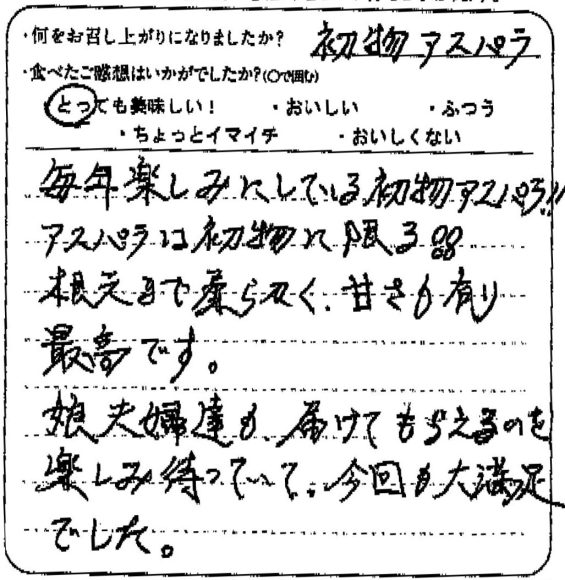 ・何をお召し上がりになりましたか？ 初物アスパラ
・食べたご感想はいかがでしたか？(○で囲む)
・とっても美味しい！ ・おいしい ・ふつう
・ちょっとイマイチ ・おいしくない
毎年楽しみにしている初物アスパラ!!
アスパラは初物に限る
根元まで柔らかく、甘さも有り
最高です。
娘夫婦達も届けてもらえるのを
楽しみ待っていて、今回も大満足
でした。